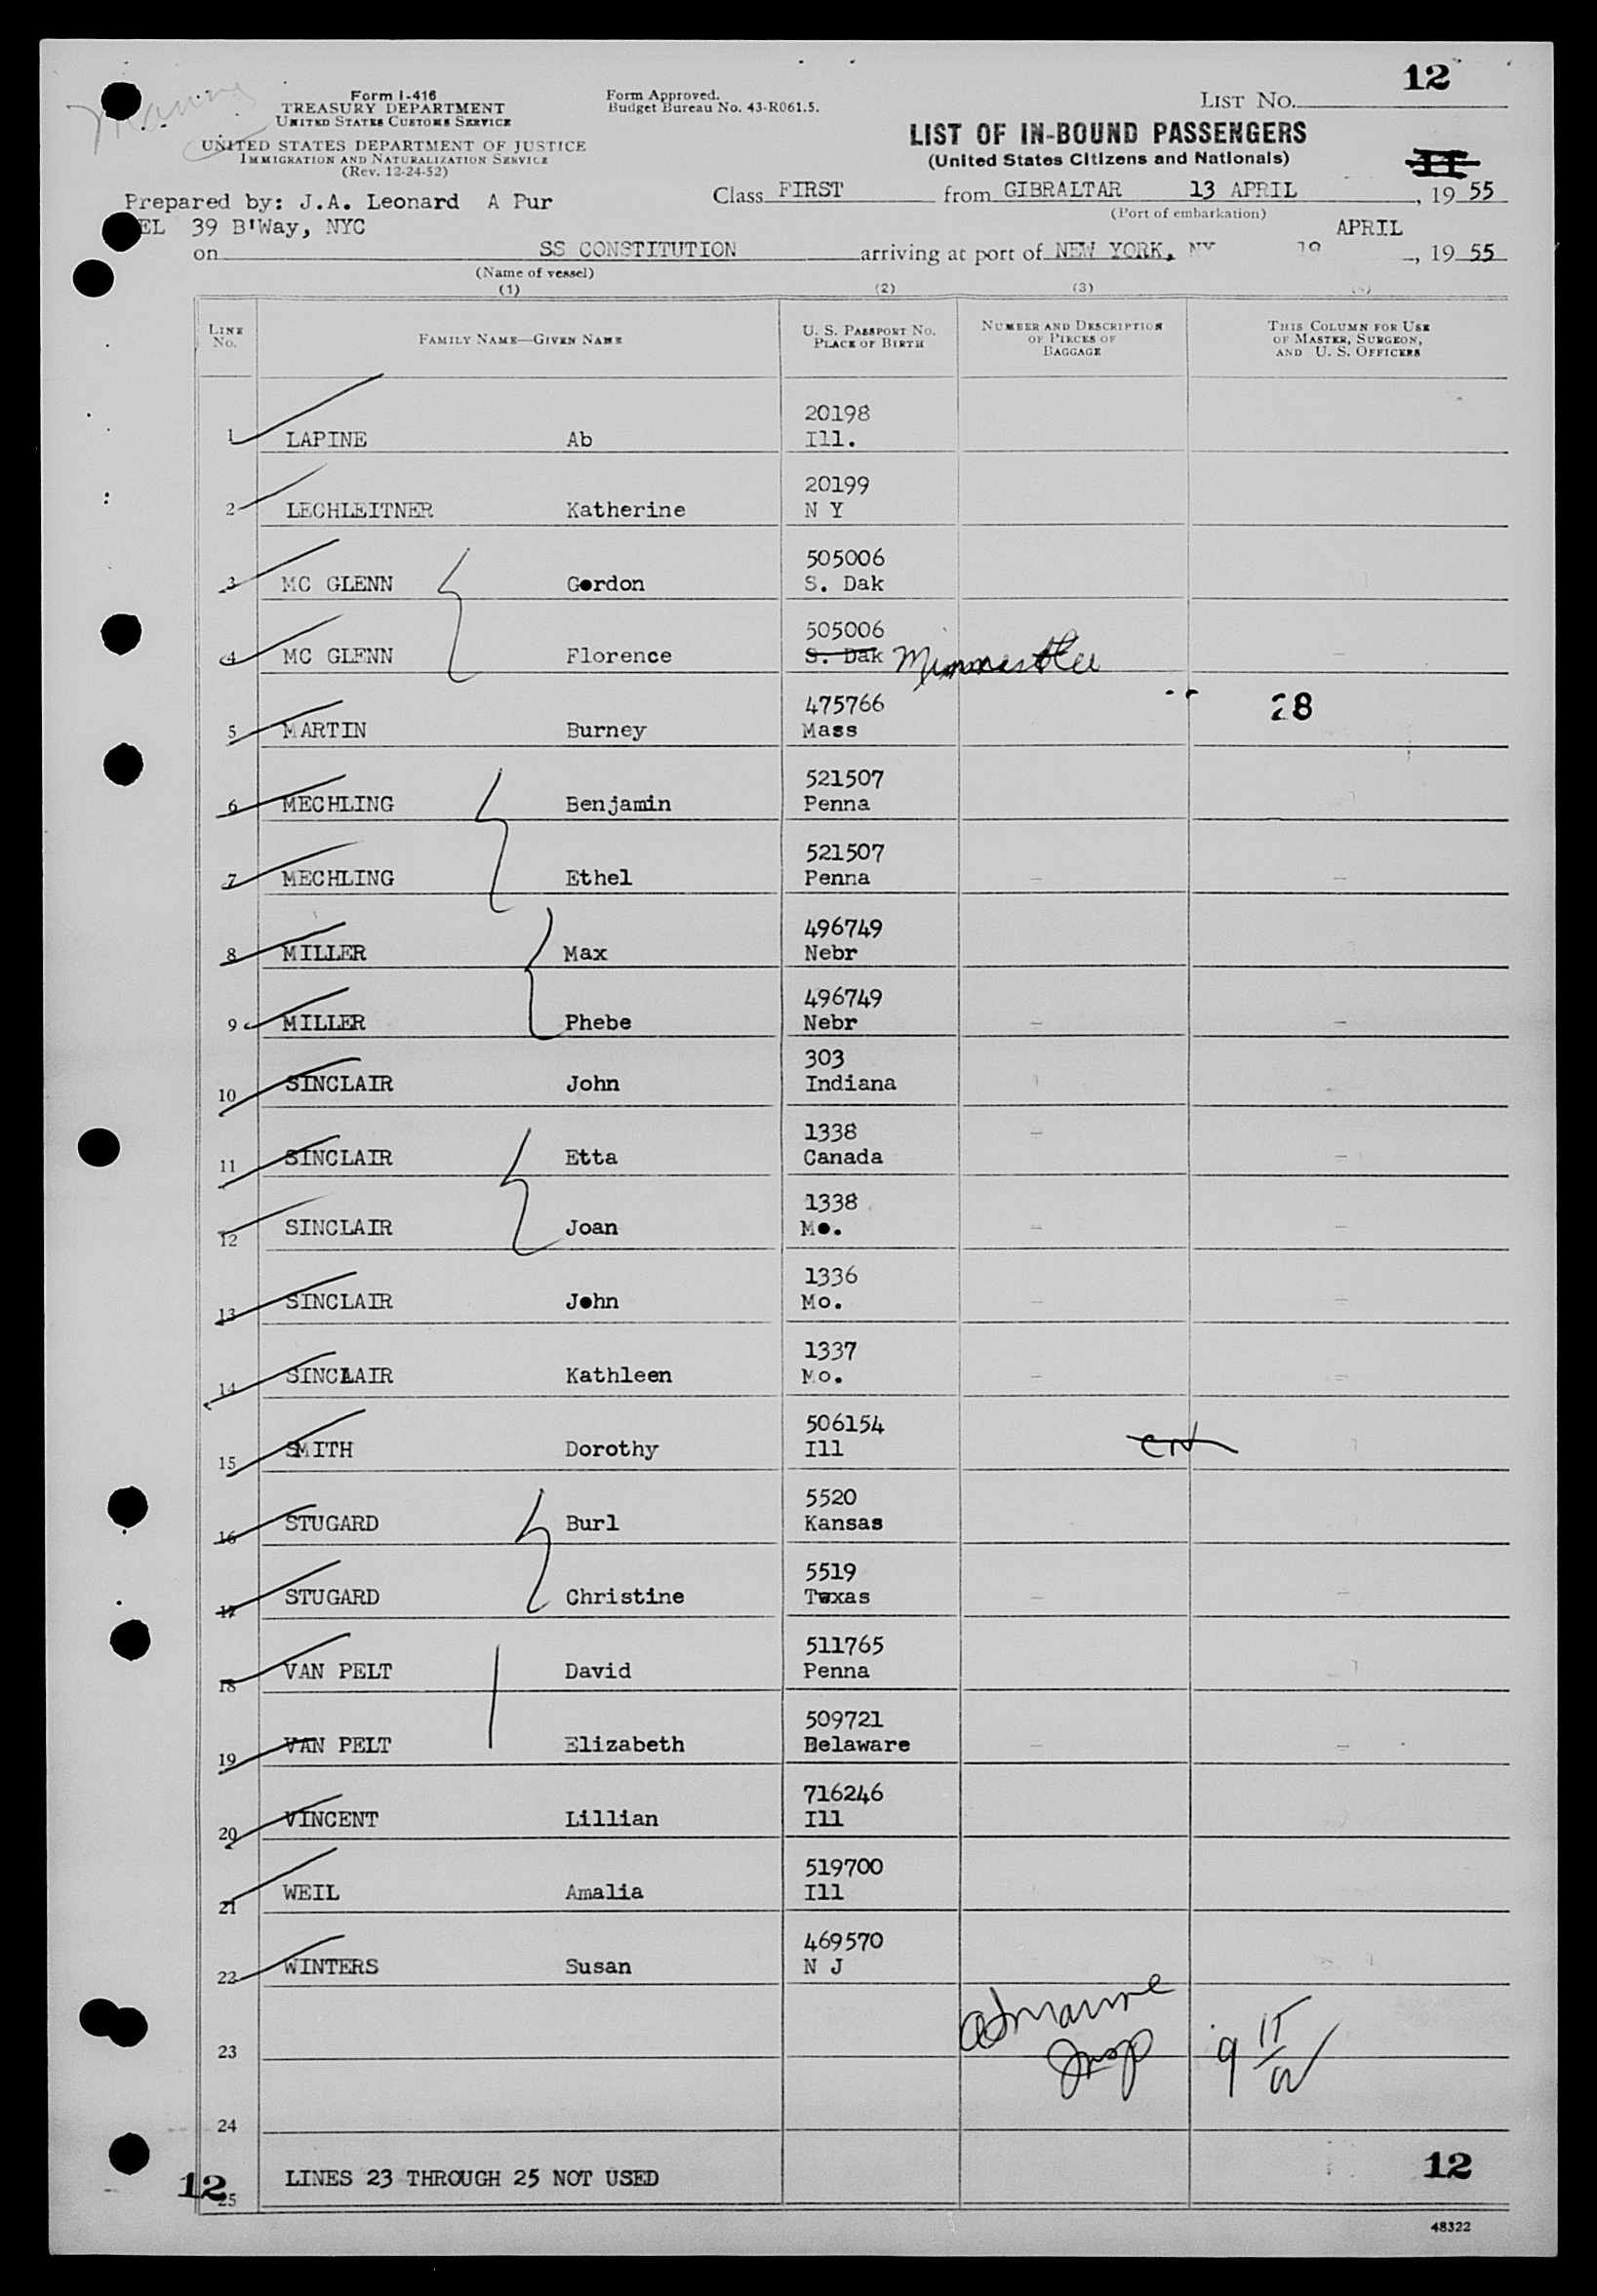 12
Form I-416
TREASURY DEPARTMENT
UNITED STATES CUSTOMS SERVICE
UNITED STATES DEPARTMENT OF JUSTICE
IMMIGRATION AND NATURALIZATION SERVICE
(Rev. 12-24-52)
Form Approved.
Budget Bureau No. 43-R061.5.
LIST NO.
LIST OF IN-BOUND PASSENGERS
(United States Citizens and Nationals)
Prepared by: J.A. Leonard A Pur
EL 39 B'Way, NYC
Class FIRST from GIBRALTAR 13 APRIL, 19 55
(Port of embarkation)
on SS CONSTITUTION arriving at port of NEW YORK, NY APRIL, 19 55
(Name of vessel)
(1) (2) (3)
LINE NO. FAMILY NAME—GIVEN NAME U. S. PASSPORT NO. PLACE OF BIRTH NUMBER AND DESCRIPTION OF PIECES OF BAGGAGE THIS COLUMN FOR USE OF MASTER, SURGEON, AND U. S. OFFICERS
20198
1 LAPINE Ab Ill.
20199
2 LECHLEITNER Katherine N Y
505006
3 MC GLENN Gordon S. Dak
505006
4 MC GLENN Florence S. Dak
475766 28
5 MARTIN Burney Mass
521507
6 MECHLING Benjamin Penna
521507
7 MECHLING Ethel Penna
496749
8 MILLER Max Nebr
496749
9 MILLER Phebe Nebr
303
10 SINCLAIR John Indiana
1338
11 SINCLAIR Etta Canada
1338
12 SINCLAIR Joan Mo.
1336
13 SINCLAIR John Mo.
1337
14 SINCLAIR Kathleen Mo.
506154
15 SMITH Dorothy Ill
5520
16 STUGARD Burl Kansas
5519
17 STUGARD Christine Texas
511765
18 VAN PELT David Penna
509721
19 VAN PELT Elizabeth Delaware
716246
20 VINCENT Lillian Ill
519700
21 WEIL Amalia Ill
469570
22 WINTERS Susan N J
Insp
23
24
12 25 LINES 23 THROUGH 25 NOT USED 12
48322